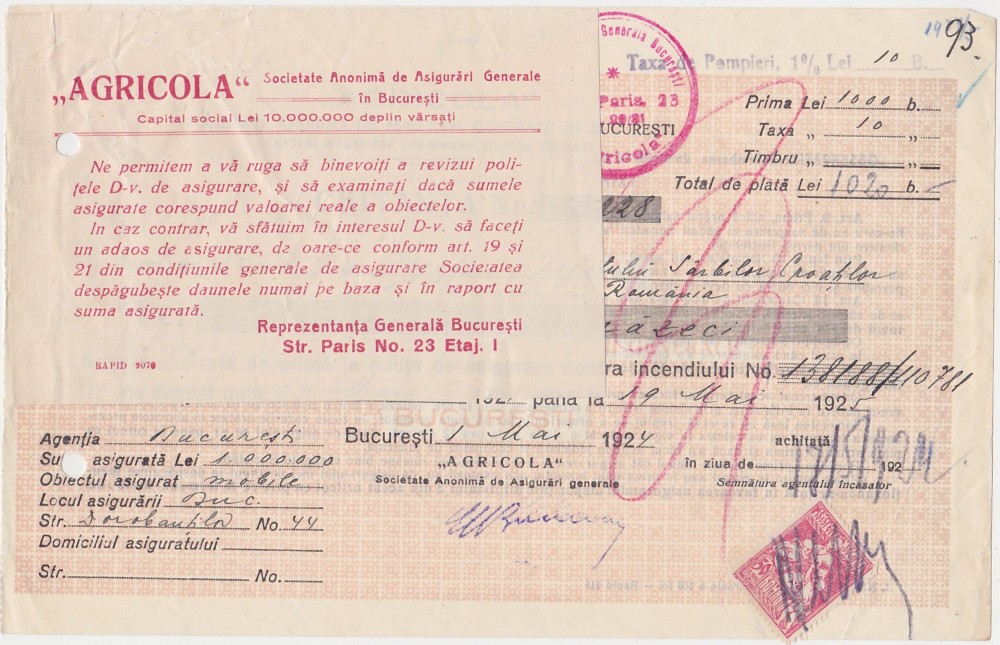 „AGRICOLA“ Societate Anonimă de Asigurări Generale
în București
Capital social Lei 10.000.000 deplin vărsați
Ne permitem a vă ruga să binevoiți a revizui poli-
țele D-v. de asigurare, și să examinați dacă sumele
asigurate corespund valoarei reale a obiectelor.
In caz contrar, vă sfătuim în interesul D-v. să faceți
un adaos de asigurare, de oare-ce conform art. 19 și
21 din condițiunile generale de asigurare Societatea
despăgubește daunele numai pe baza și în raport cu
suma asigurată.
Reprezentanța Generală București
Str. Paris No. 23 Etaj. I
RAPID 9070
93
Generala București
Paris, 23
UCUREȘTI
Agricola
Taxa de Pompieri, 1% Lei 10 B.
Prima Lei 1000 b.
Taxa „ 10 „
Timbru „ „
Total de plată Lei 1020 b.
228
Sârbilor Croaților
România
zăzeci
ra incendiului No. 138188/110781
până la 19 Mai 1925
BUCUREȘTI
Agenția București
Su asigurată Lei 1.000.000
Obiectul asigurat mobile
Locul asigurării Buc.
Str. Dorobanților No. 44
Domiciliul asiguratului
Str. No.
București 1 Mai 1924
„AGRICOLA“
Societate Anonimă de Asigurări generale
achitată
în ziua de 192
Semnătura agentului încasator